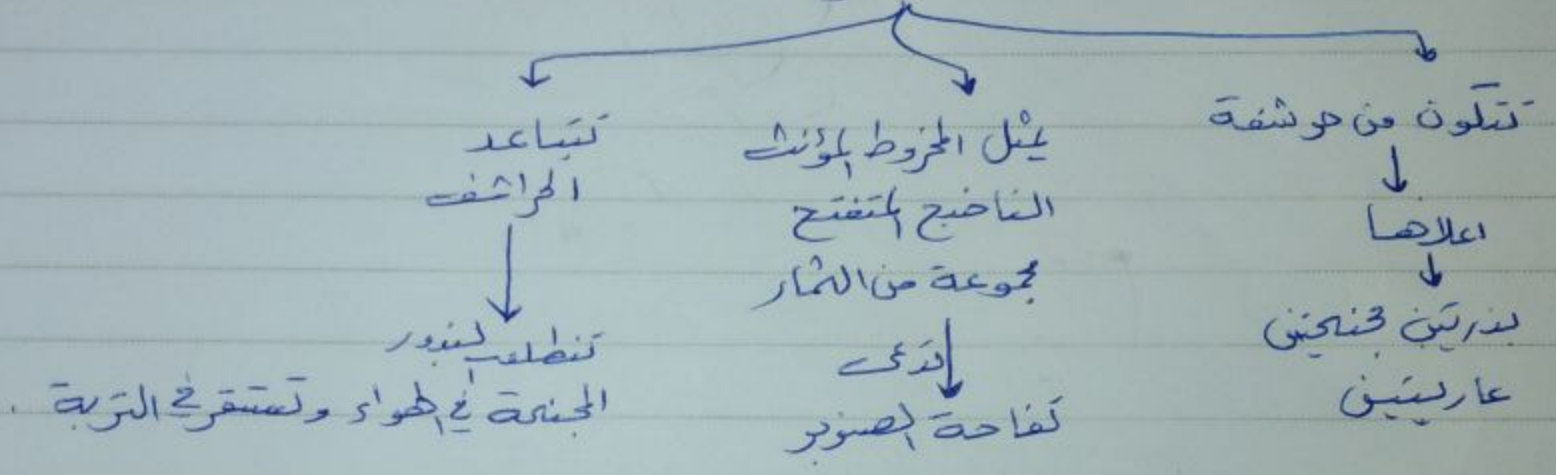 تتكون من حرشفة
اعلاها
بذرتين مجنحتين
عاريتين
يمثل المخروط المؤنث
الناضج المتفتح
مجموعة من الثمار
تدعى
تفاحة الصنوبر
تتباعد
الحراشف
تنطلق البذور
المجنحة في الهواء وتستقر في التربة .